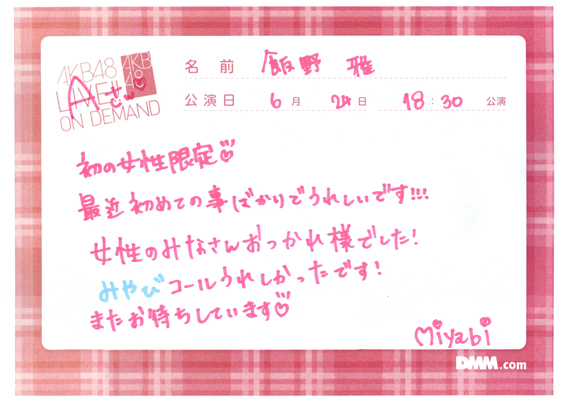 AKB48
LIVE!!
ON DEMAND
AKB
48
名前 飯野 雅
公演日 6月 24日 18:30 公演
初の女性限定♡
最近初めての事ばかりでうれしいです!!!
女性のみなさんおつかれ様でした!
みやびコールうれしかったです!
またお待ちしています♡
Miyabi
DMM.com